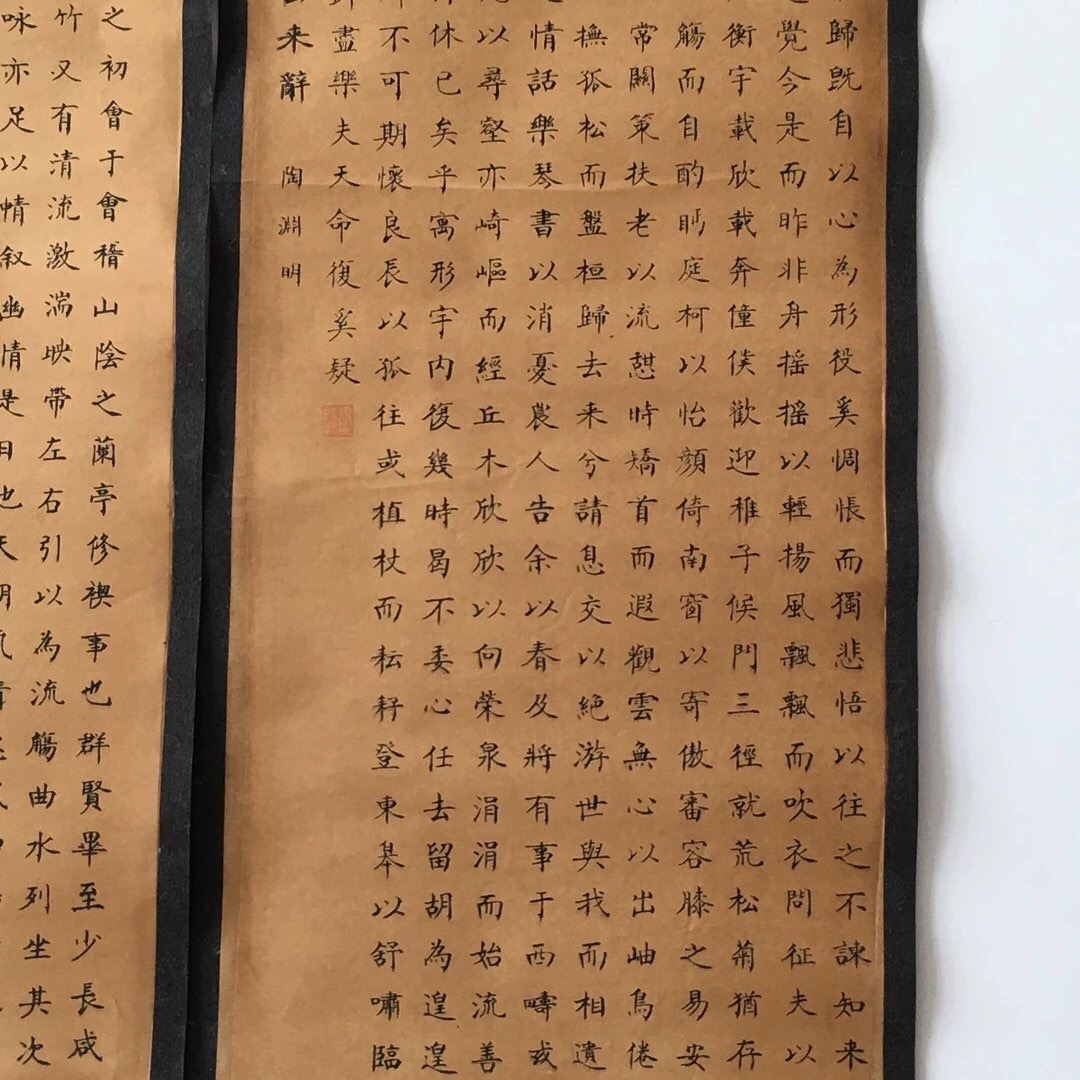 歸既自以心為形役奚惆悵而獨悲悟以往之不諫知来
覺今是而昨非舟摇摇以輕揚風飄飄而吹衣問征夫以
衡宇載欣載奔僮僕歡迎稚子候門三徑就荒松菊猶存
觴而自酌眄庭柯以怡顏倚南窗以寄傲審容膝之易安
常關策扶老以流憩時矯首而遐觀雲無心以出岫鳥倦
撫孤松而盤桓歸去来兮請息交以絕游世與我而相遺
情話樂琴書以消憂農人告余以春及將有事于西疇或
以尋壑亦崎嶇而經丘木欣欣以向榮泉涓涓而始流善
休已矣乎寓形宇内復幾時曷不委心任去留胡為遑遑
不可期懷良辰以孤往或植杖而耘耔登東皋以舒嘯臨
盡樂夫天命復奚疑
来辭 陶淵明
之初會于會稽山陰之蘭亭修禊事也群賢畢至少長咸
竹又有清流激湍映帶左右引以為流觴曲水列坐其次
咏亦足以叙幽情是日也天